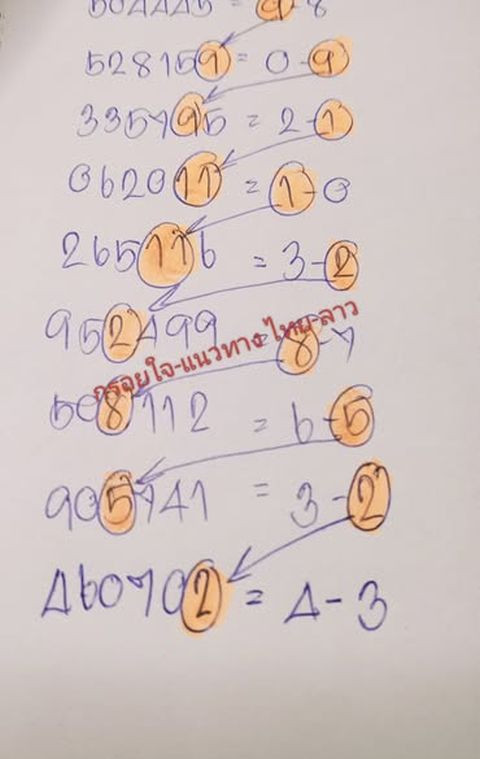 504445 = 9-8
528159 = 0-9
335795 = 2-1
062011 = 1-0
265116 = 3-2
952499 = 8-7
กรอยใจ-แนวทาง-ไทย-ลาว
508112 = 6-5
905741 = 3-2
460702 = 4-3